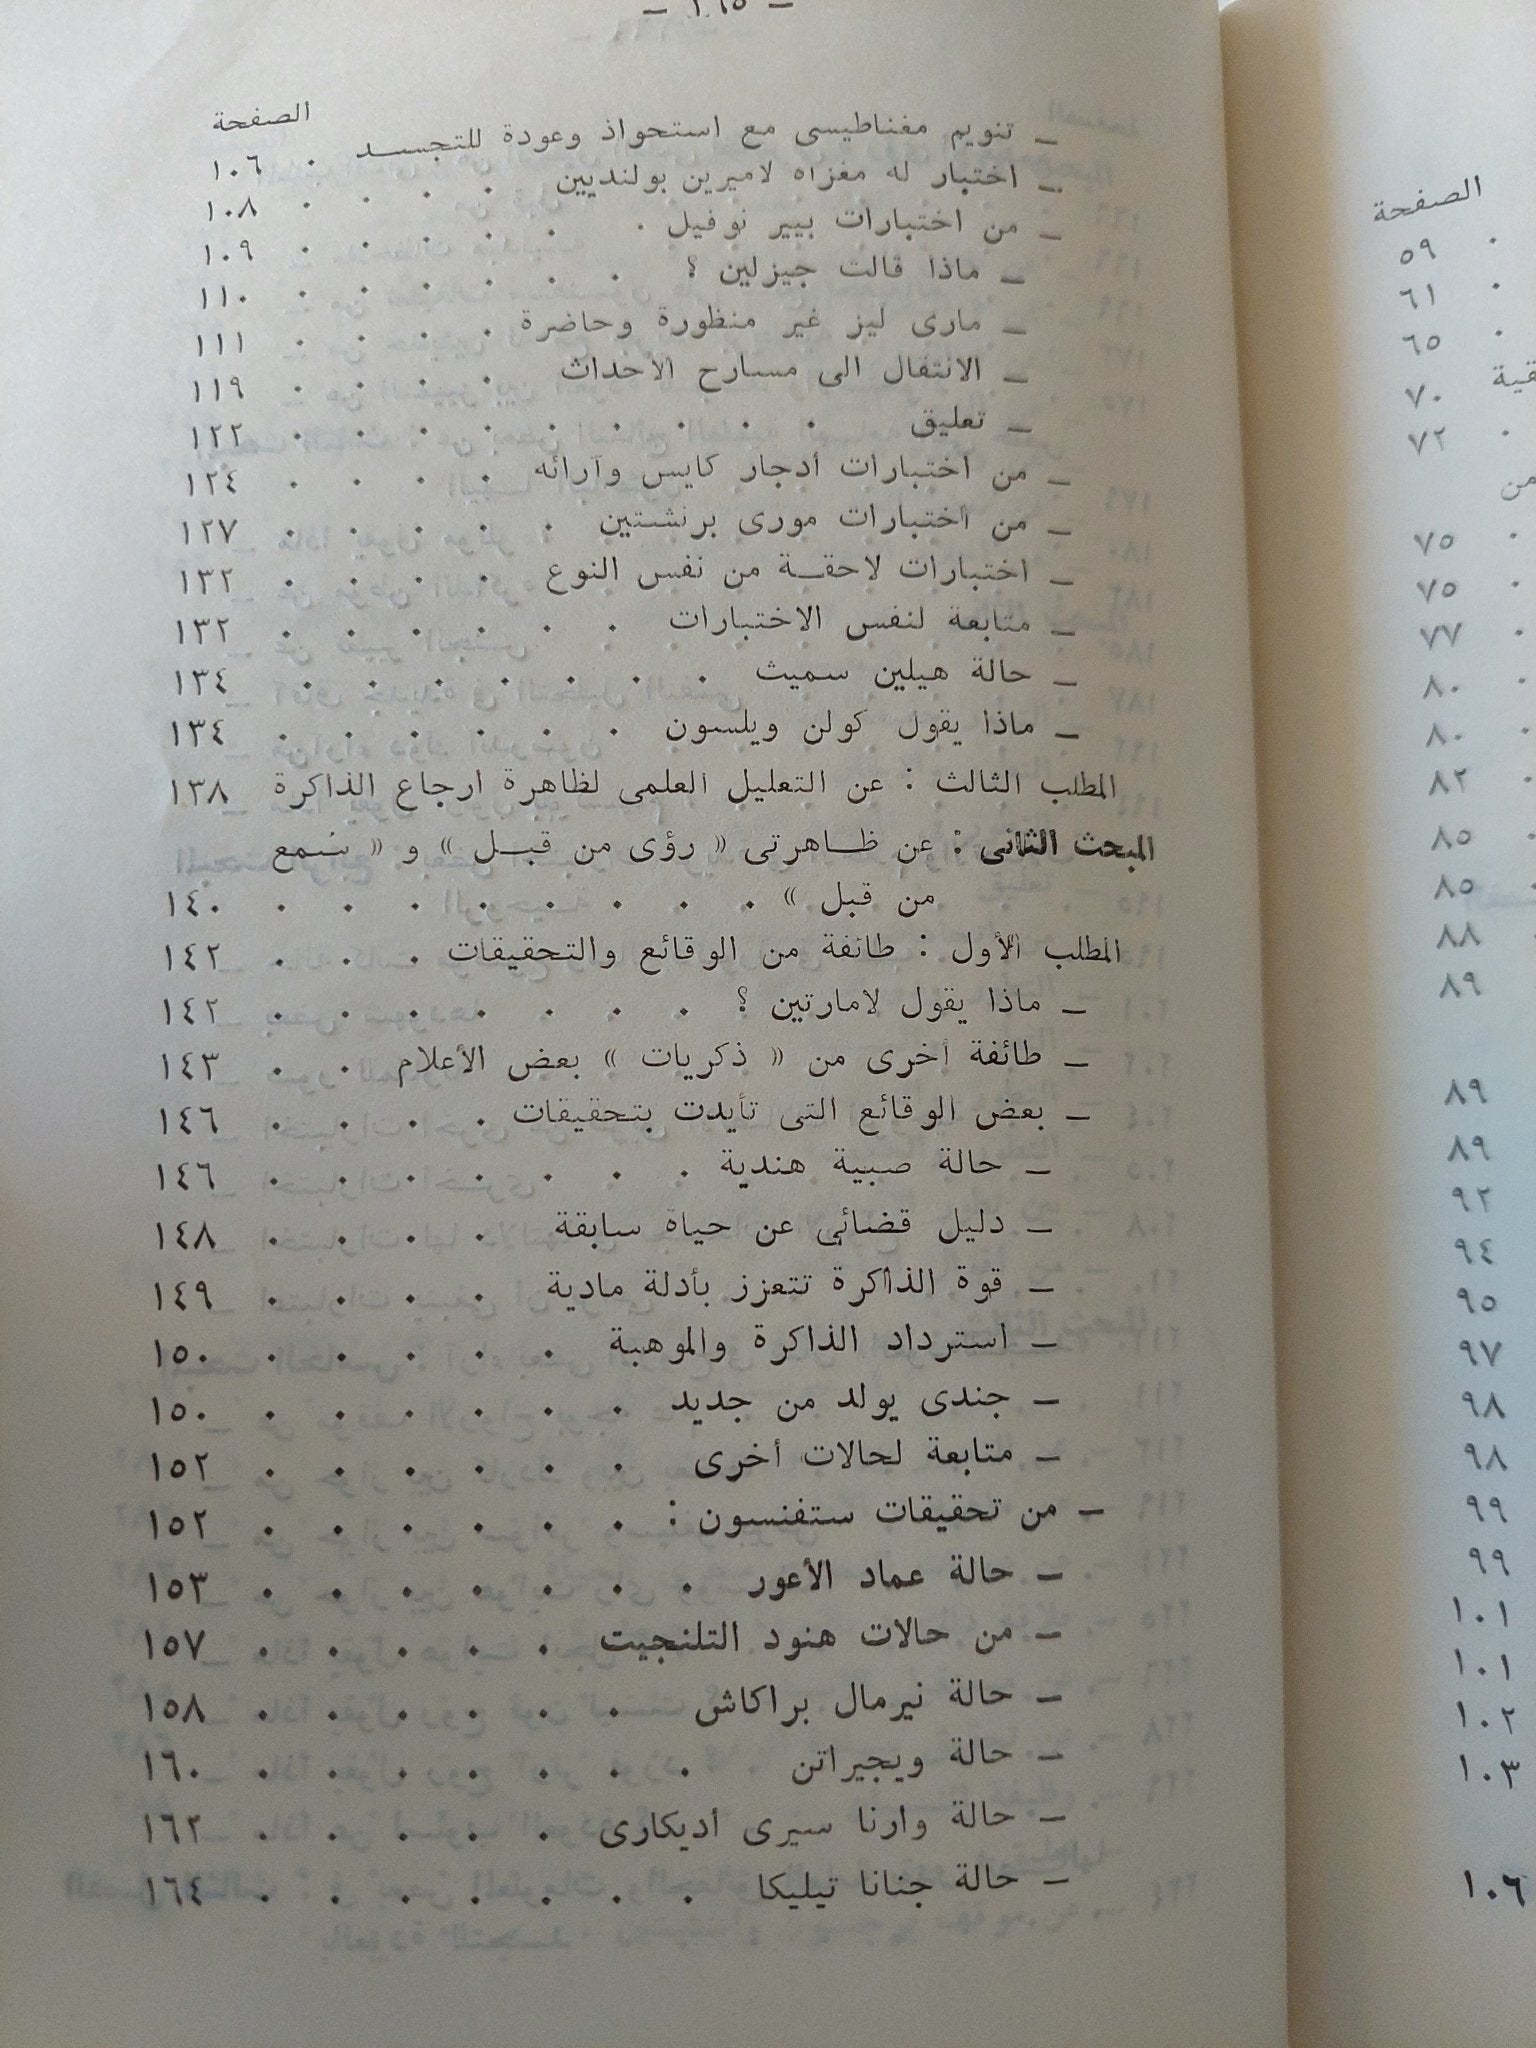 الصفحة
ـ تنويم مغناطيسى مع استحواذ وعودة للتجسـد . ١٠٦
ـ اختبار له مغزاه لاميرين بولنديين . . . . ١٠٨
ـ من اختبارات بيير نوفيل . . . . . . ١٠٩
ـ ماذا قالت جيزلين ؟ . . . . . . ١١٠
ـ مارى ليز غير منظورة وحاضرة . . . . ١١١
ـ الانتقال الى مسارح الاحداث . . . . ١١٩
ـ تعليق . . . . . . . . . ١٢٢
ـ من اختبارات أدجار كايس وآرائه . . . . ١٢٤
ـ من اختبارات مورى برنشتين . . . . . ١٢٧
ـ اختبارات لاحقـة من نفس النوع . . . . ١٣٢
ـ متابعة لنفس الاختبارات . . . . . . ١٣٢
ـ حالة هيلين سميث . . . . . . . ١٣٤
ـ ماذا يقول كولن ويلسون . . . . . . ١٣٤
المطلب الثالث : عن التعليل العلمى لظاهرة ارجاع الذاكرة ١٣٨
المبحث الثانى : عن ظـاهرتى « رؤى من قبـل » و « سـمع
من قبل » . . . . . . . . ١٤٠
المطلب الأول : طائفة من الوقائع والتحقيقات . . . ١٤٢
ـ ماذا يقول لامارتين ؟ . . . . . . . ١٤٢
ـ طائفة أخرى من « ذكريات » بعض الأعلام . . ١٤٣
ـ بعض الوقائع التى تأيدت بتحقيقات . . . . ١٤٦
ـ حالة صبية هندية . . . . . . . ١٤٦
ـ دليل قضائى عن حياة سابقة . . . . ١٤٨
ـ قوة الذاكرة تتعزز بأدلة مادية . . . . ١٤٩
ـ استرداد الذاكرة والموهبة . . . . . ١٥٠
ـ جندى يولد من جديد . . . . . . ١٥٠
ـ متابعة لحالات أخرى . . . . . . ١٥٢
ـ من تحقيقات ستفنسون : . . . . . . ١٥٢
ـ حالة عماد الأعور . . . . . . . ١٥٣
ـ من حالات هنود التلنجيت . . . . . ١٥٧
ـ حالة نيرمال براكاش . . . . . . ١٥٨
ـ حالة ويجيراتن . . . . . . . ١٦٠
ـ حالة وارنا سيرى أديكارى . . . . . ١٦٢
ـ حالة جنانا تيليكا . . . . . . . ١٦٤
الصفحة
. ٥٩
. ٦١
. ٦٥
٧٠
. ٧٢
من
. ٧٥
. ٧٥
. ٧٧
. ٨٠
. ٨٠
. ٨٢
. ٨٥
. ٨٥
٨٨
٨٩
٨٩
٨٩
٩٢
٩٤
٩٥
٩٧
٩٨
٩٨
٩٩
٩٩
١٠١
١٠١
١٠٢
١٠٣
١٠٦